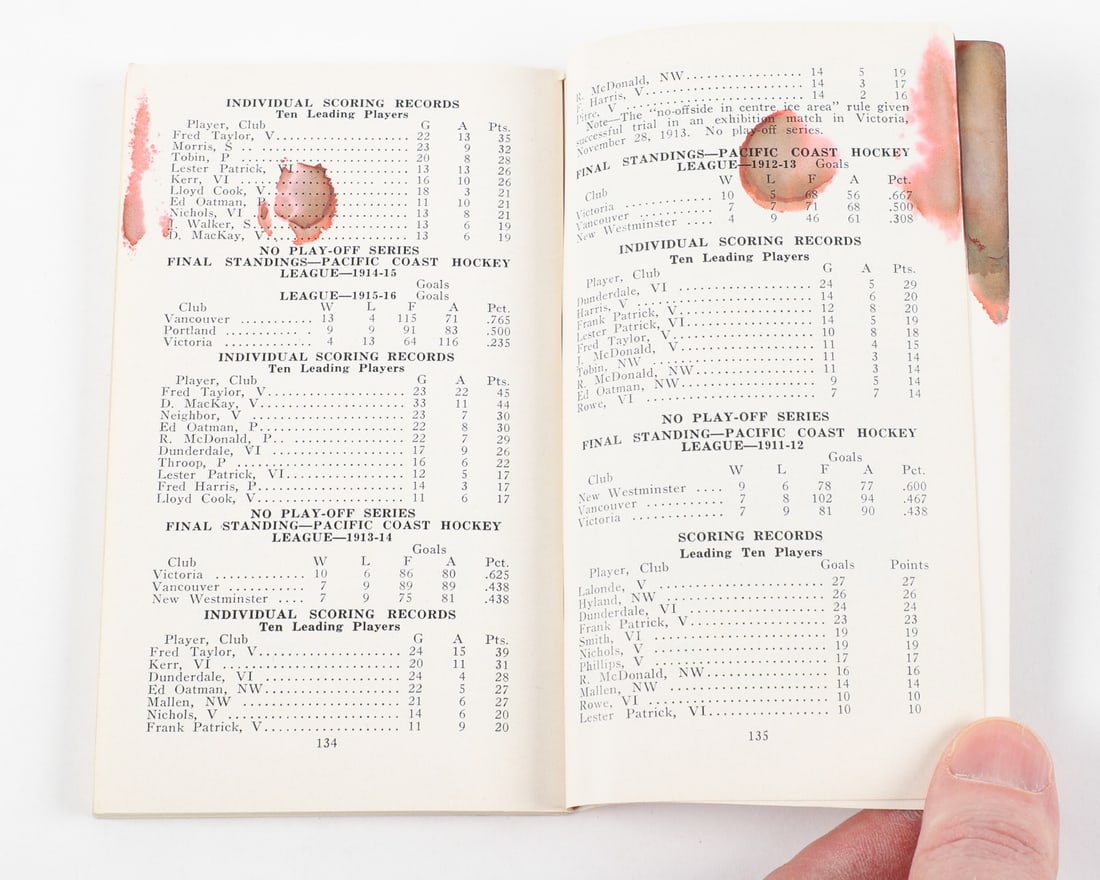 INDIVIDUAL SCORING RECORDS
Ten Leading Players
Player, Club G A Pts.
Fred Taylor, V. 22 13 35
Morris, S 23 9 32
Tobin, P 20 8 28
Lester Patrick, VI 13 13 26
Kerr, VI 16 10 26
Lloyd Cook, V. 18 3 21
Ed Oatman, P. 11 10 21
Nichols, VI 13 8 21
J. Walker, S. 13 6 19
D. MacKay, V. 13 6 19
NO PLAY-OFF SERIES
FINAL STANDINGS—PACIFIC COAST HOCKEY
LEAGUE—1914-15
Goals
LEAGUE—1915-16 Goals
Club W L F A Pct.
Vancouver 13 4 115 71 .765
Portland 9 9 91 83 .500
Victoria 4 13 64 116 .235
INDIVIDUAL SCORING RECORDS
Ten Leading Players
Player, Club G A Pts.
Fred Taylor, V. 23 22 45
D. MacKay, V. 33 11 44
Neighbor, V 23 7 30
Ed Oatman, P. 22 8 30
R. McDonald, P. 22 7 29
Dunderdale, VI 17 9 26
Throop, P 16 6 22
Lester Patrick, VI. 12 5 17
Fred Harris, P. 14 3 17
Lloyd Cook, V. 11 6 17
NO PLAY-OFF SERIES
FINAL STANDING—PACIFIC COAST HOCKEY
LEAGUE—1913-14
Goals
Club W L F A Pct.
Victoria 10 6 86 80 .625
Vancouver 7 9 89 89 .438
New Westminster 7 9 75 81 .438
INDIVIDUAL SCORING RECORDS
Ten Leading Players
Player, Club G A Pts.
Fred Taylor, V. 24 15 39
Kerr, VI 20 11 31
Dunderdale, VI 24 4 28
Ed Oatman, NW. 22 5 27
Mallen, NW 21 6 27
Nichols, V 14 6 20
Frank Patrick, V. 11 9 20
134
R. McDonald, NW. 14 5 19
F. Harris, V. 14 3 17
Pitre, V 14 2 16
Note—The "no-offside in centre ice area" rule given
successful trial in an exhibition match in Victoria,
November 28, 1913. No play-off series.
FINAL STANDINGS—PACIFIC COAST HOCKEY
LEAGUE—1912-13 Goals
Club W L F A Pct.
Victoria 10 5 68 56 .667
Vancouver 7 7 71 68 .500
New Westminster 4 9 46 61 .308
INDIVIDUAL SCORING RECORDS
Ten Leading Players
Player, Club G A Pts.
Dunderdale, VI 24 5 29
Harris, V 14 6 20
Frank Patrick, V. 12 8 20
Lester Patrick, VI. 14 5 19
Fred Taylor, V. 10 8 18
J. McDonald, V. 11 4 15
Tobin, NW 11 3 14
R. McDonald, NW. 11 3 14
Ed Oatman, NW. 9 5 14
Rowe, VI 7 7 14
NO PLAY-OFF SERIES
FINAL STANDING—PACIFIC COAST HOCKEY
LEAGUE—1911-12
Goals
Club W L F A Pct.
New Westminster 9 6 78 77 .600
Vancouver 7 8 102 94 .467
Victoria 7 9 81 90 .438
SCORING RECORDS
Leading Ten Players
Player, Club Goals Points
Lalonde, V 27 27
Hyland, NW 26 26
Dunderdale, VI 24 24
Frank Patrick, V. 23 23
Smith, VI 19 19
Nichols, V 19 19
Phillips, V 17 17
R. McDonald, NW. 16 16
Mallen, NW 14 14
Rowe, VI 10 10
Lester Patrick, VI. 10 10
135